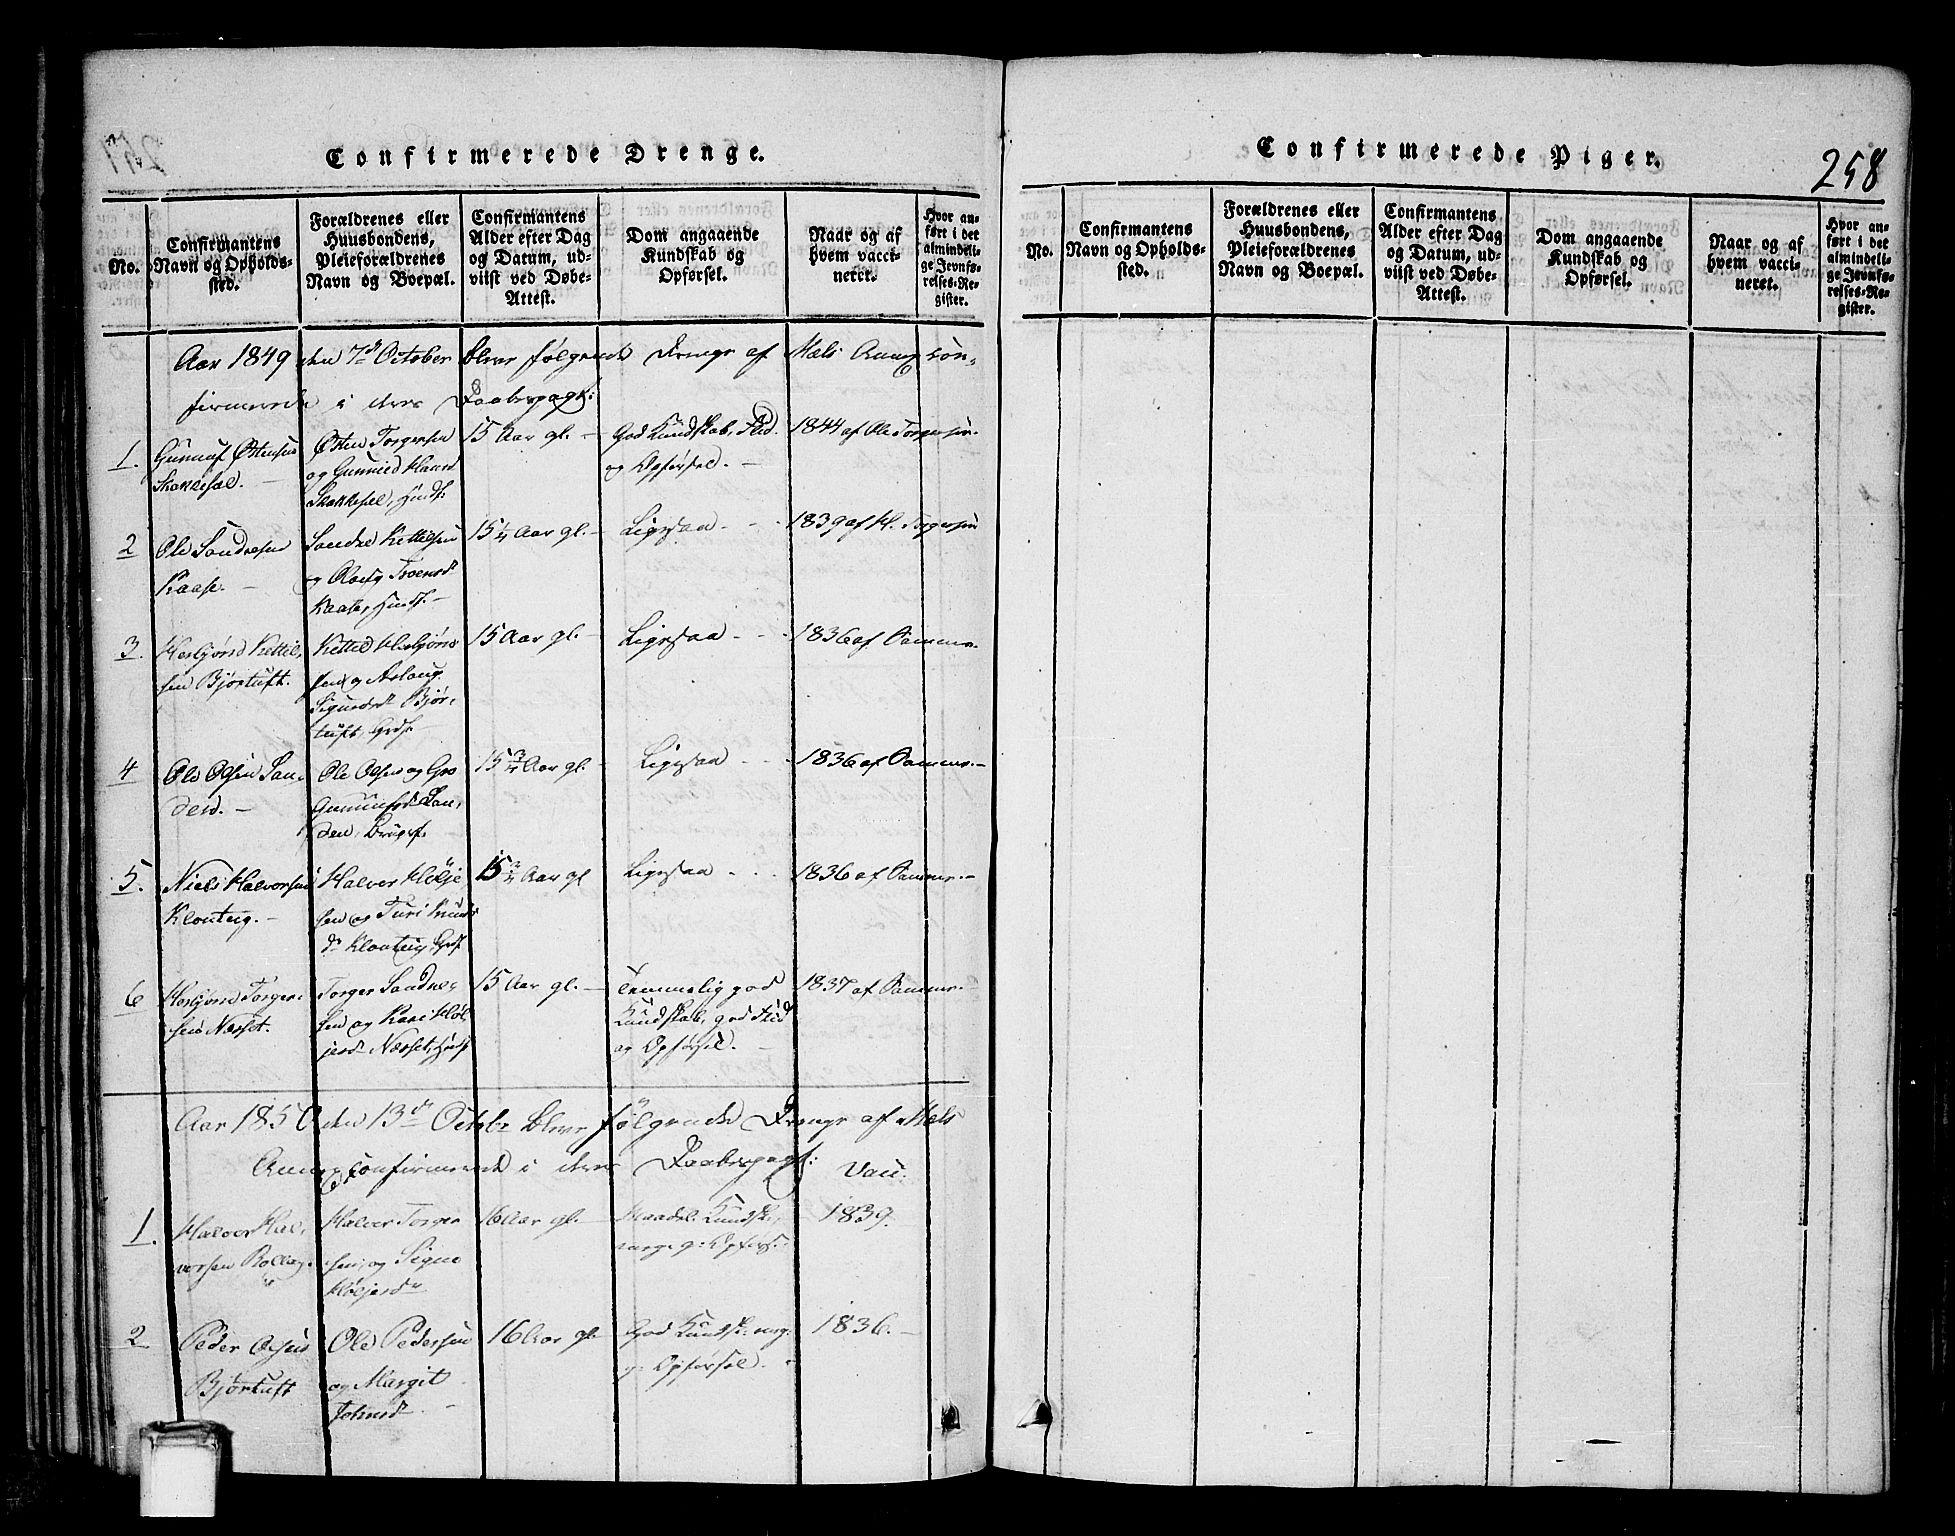 Confirmerede Drenge.
No.
Confirmantens Navn og Opholdssted.
Forældrenes eller Huusbondens, Pleieforældrenes Navn og Boepæl.
Confirmantens Alder efter Dag og Datum, udviist ved Døbe-Attest.
Dom angaaende Kundskab og Opførsel.
Naar og af hvem vaccineret.
Hvor anført i det almindelige Jevnførelses-Register.
Aar 1849 den 7d October blev følgende Drenge af Mæls Annex con-
firmerede i deres Daabspagt:
1. Gunnuf Østensen
Skakkesæl. —
Østen Torgersen
og Gunnild Hansd
Skakkesæl, Huusf.
15 Aar gl. —
God Kundskab, Flid
og Opførsel. —
1844 af Ole Torgersen.
2 Ole Sondresen
Kaase. —
Sondre Kettelsen
og Aaseg Troensd
Kaase, Huusf. —
15 1/4 Aar gl. —
Ligesaa
1839 af H. Torgersen
3. Herbjørnd Kettil-
sen Bjørtuft.
Kettil Herbjørns-
sen og Aslaug
Sigurdsd Bjør-
tuft, Grdf. —
15 Aar gl. —
Ligesaa
1836 af Samme. —
4 Ole Olsen San-
den. —
Ole Olsen og Gro
Gunnufsd San-
den, Brugsf.
15 3/4 Aar gl. —
Ligesaa
1836 af Samme. —
5. Niels Halvorsen
Klonteig. —
Halvor Høljesen
og Turi Knuds-
dr Klonteig, Grdf.
15 3/4 Aar gl
Ligesaa
1836 af Samme. —
6 Herbjørnd Torger-
sen Næsset.
Torger Sondre-
sen og Kari Høl-
jesdr Næsset, Huusf
15 Aar gl. —
Temmelig god
Kundskab, god Flid
og Opførsel. —
1837 af Samme. —
Aar 1850 den 13de Octobr blev følgende Drenge af Mæls
Annex confirmerede i deres Daabspagt:
Vacc.
1. Halvor Hal-
vorsen Rollag.
Halvor Torger-
sen, og Signe
Høljesdr
16 Aar gl. —
Maadel. Kundsk.,
meget g: Opførs:
1839.
2 Peder Olsen
Bjørtuft
Ole Pedersen
og Margit
Johnsd —
16 Aar gl. —
God Kundsk: meg.
g: Opførsel.
1836. —
Confirmerede Piger.
258
No.
Confirmantens Navn og Opholdssted.
Forældrenes eller Huusbondens, Pleieforældrenes Navn og Boepæl.
Confirmantens Alder efter Dag og Datum, udviist ved Døbe-Attest.
Dom angaaende Kundskab og Opførsel.
Naar og af hvem vaccineret.
Hvor anført i det almindelige Jevnførelses-Register.